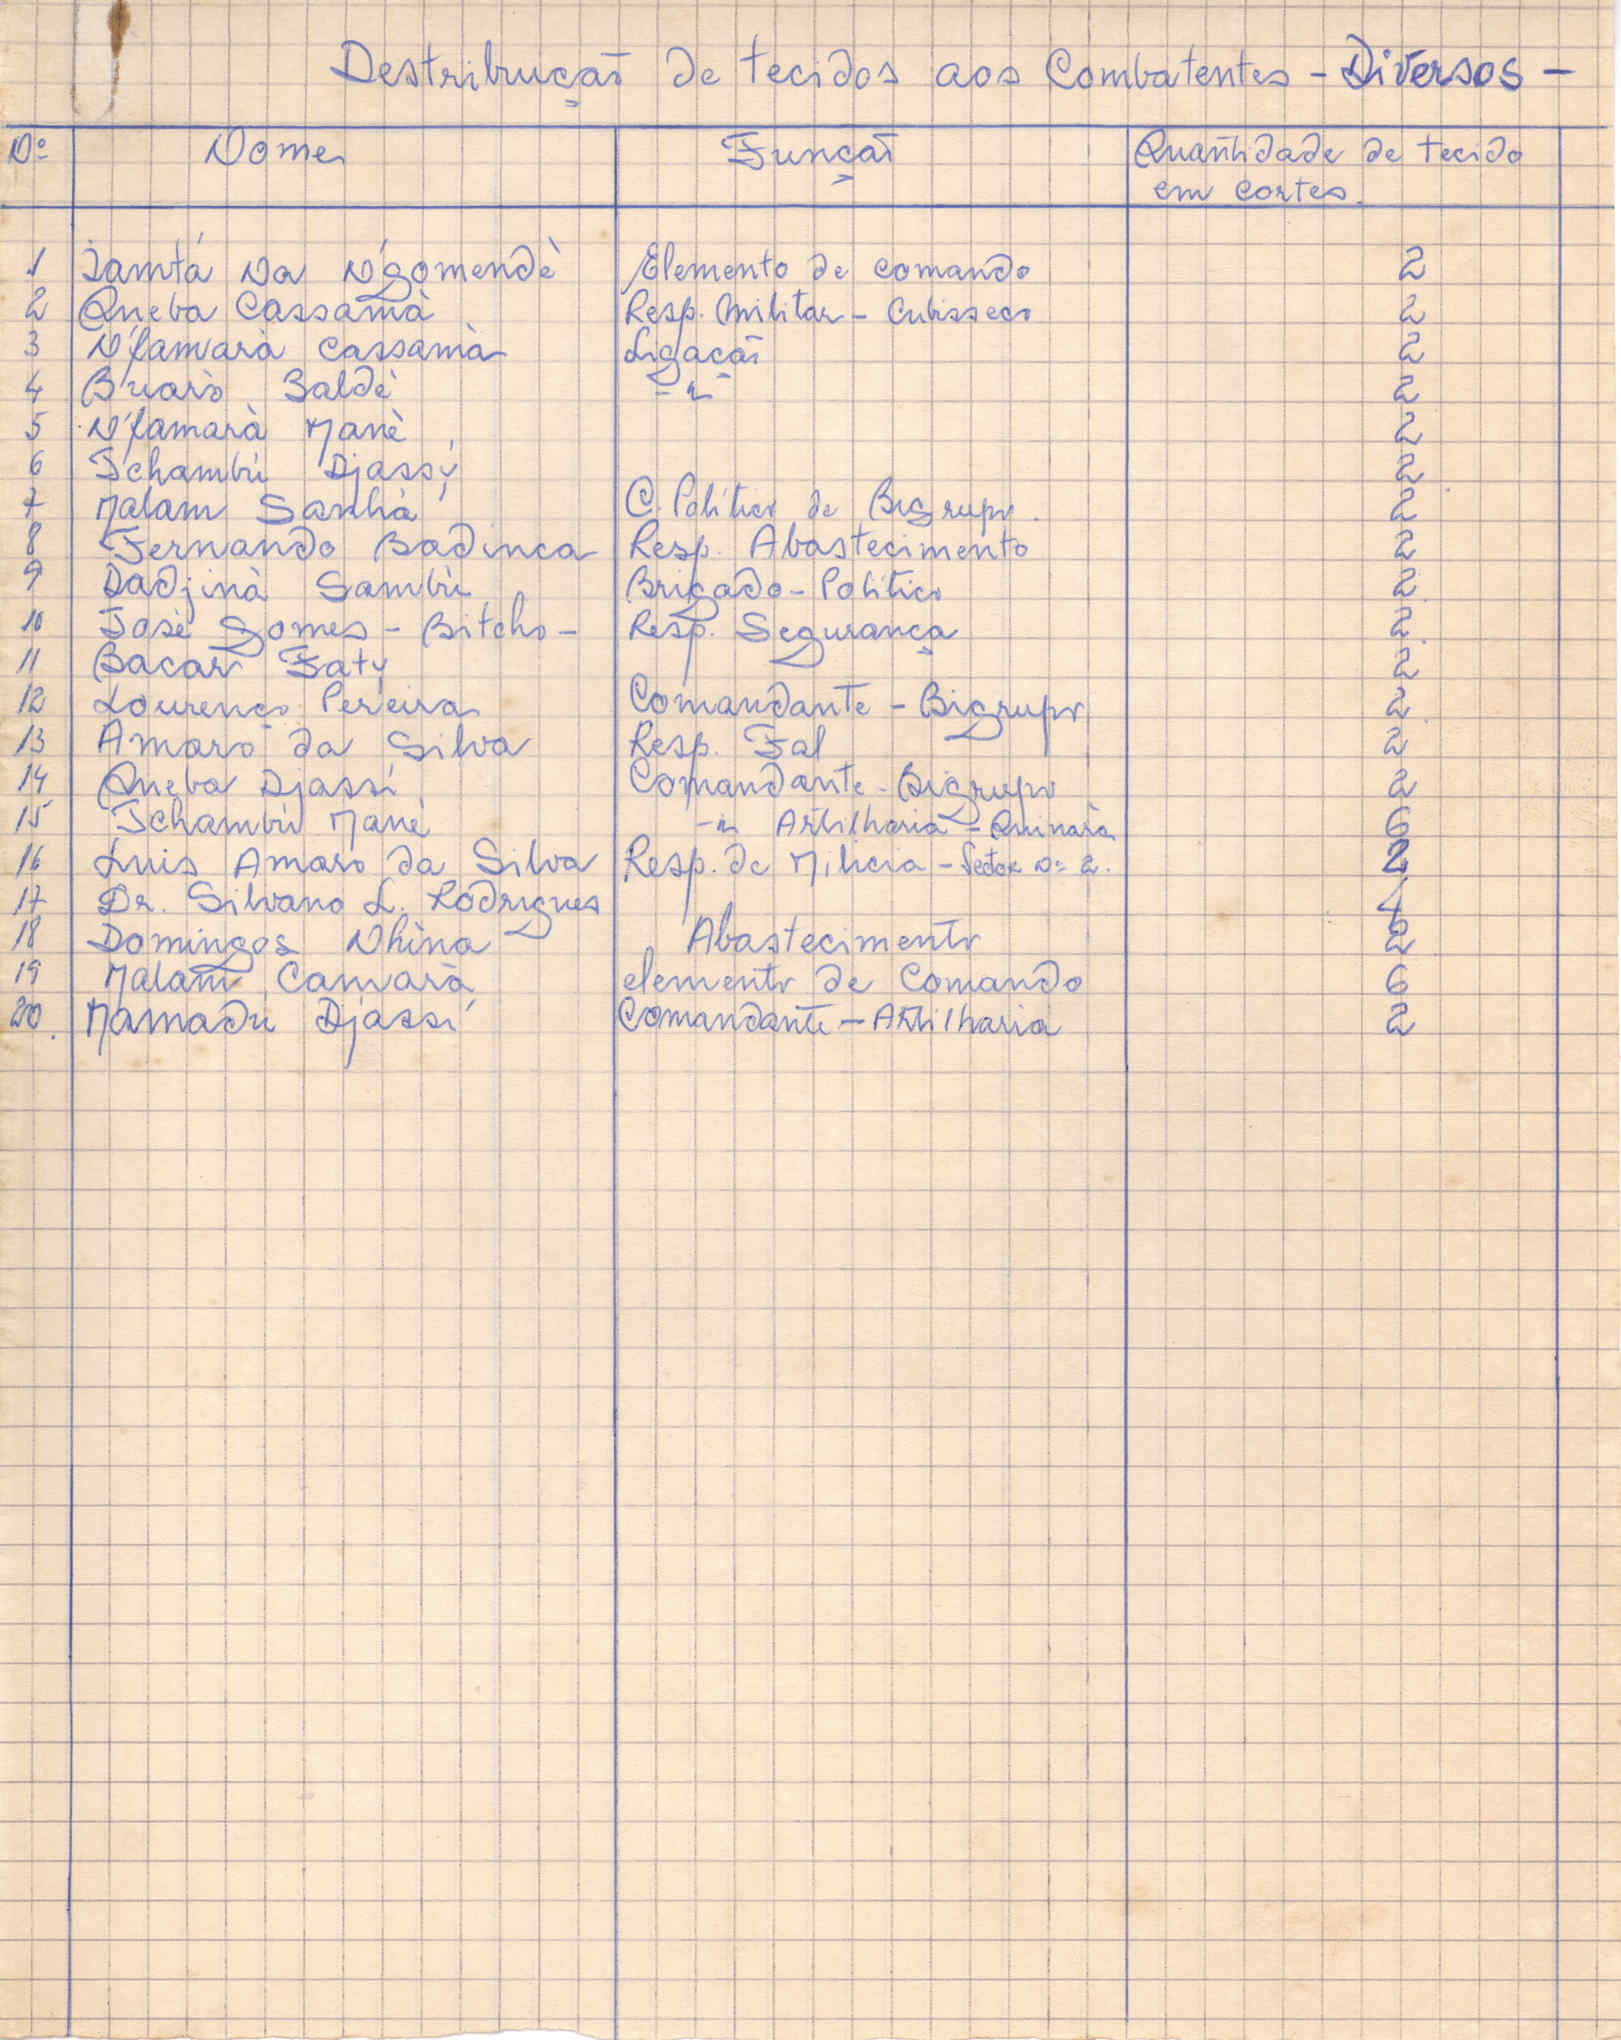 Destribuçaõ de tecidos aos Combatentes - Diversos -
Nº Nome Funçaõ Quantidade de tecido
em cortes.
1 Iamtá Na N'gomendè Elemento de comando 2
2 Queba Cassamà Resp. Militar - Cubisseco 2
3 N'famarà Cassamà Ligaçaõ 2
4 Buarò Baldè - " - 2
5 N'famarà Manè 2
6 Tchambú Djassý 2
7 Malam Sanhà C. Politico de Bigrupo. 2
8 Fernando Badinca Resp. Abastecimento 2
9 Dadjinà Sambù Brigada - Politico 2
10 Josè Gomes - Bitcho - Resp. Segurança 2
11 Bacar Faty 2
12 Lourenço Pereira Comandante - Bigrupo 2
13 Amaro da Silva Resp. Fal 2
14 Queba Djassí Comandante - Bigrupo 2
15 Tchambú Manè - " Artilharia - Quinara 6
16 Luis Amaro da Silva Resp. de Milicia - Sector Nº 2. 2
17 Dr. Silvano L. Rodrigues 4
18 Domingos Nhina Abastecimento 2
19 Malam Camarà elemento de Comando 6
20. Mamadú Djassí Comandante - Artilharia 2